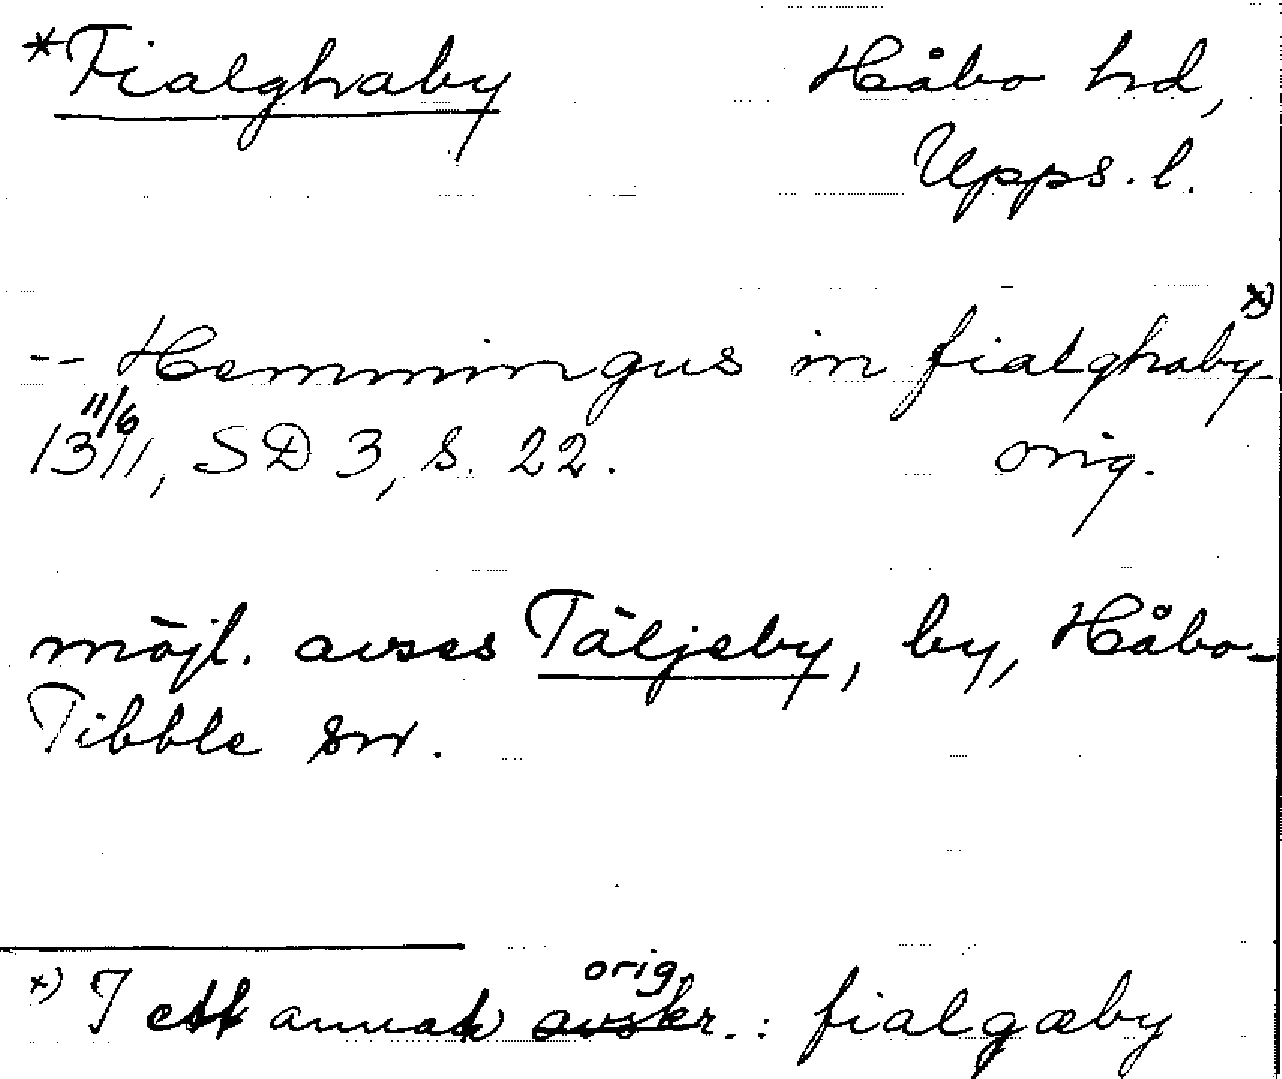 *Fialghaby Håbo hd,
Upps. l.
-- Hemmingus in fialghaby x)
11/6
1311, SD 3, s. 22. orig.
möjl. avses Täljeby, by, Håbo-
Tibble sn.
orig.
x) I ett annat avskr. : fialgæby